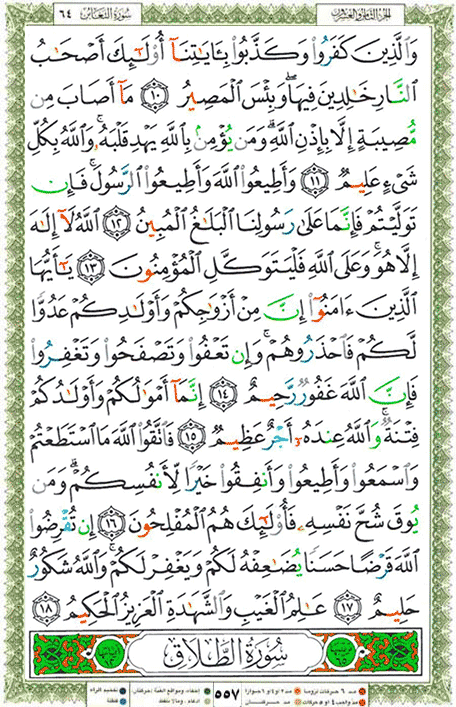 الجزء الثامن والعشرون
سورة التغابن ٦٤
وَالَّذِينَ كَفَرُوا۟ وَكَذَّبُوا۟ بِـَٔايَـٰتِنَآ أُو۟لَـٰٓئِكَ أَصْحَـٰبُ
ٱلنَّارِ خَـٰلِدِينَ فِيهَا ۖ وَبِئْسَ ٱلْمَصِيرُ ١٠ مَآ أَصَابَ مِن
مُّصِيبَةٍ إِلَّا بِإِذْنِ ٱللَّهِ ۗ وَمَن يُؤْمِنۢ بِٱللَّهِ يَهْدِ قَلْبَهُۥ ۚ وَٱللَّهُ بِكُلِّ
شَىْءٍ عَلِيمٌ ١١ وَأَطِيعُوا۟ ٱللَّهَ وَأَطِيعُوا۟ ٱلرَّسُولَ ۚ فَإِن
تَوَلَّيْتُمْ فَإِنَّمَا عَلَىٰ رَسُولِنَا ٱلْبَلَـٰغُ ٱلْمُبِينُ ١٢ ٱللَّهُ لَآ إِلَـٰهَ
إِلَّا هُوَ ۚ وَعَلَى ٱللَّهِ فَلْيَتَوَكَّلِ ٱلْمُؤْمِنُونَ ١٣ يَـٰٓأَيُّهَا
ٱلَّذِينَ ءَامَنُوٓا۟ إِنَّ مِنْ أَزْوَٰجِكُمْ وَأَوْلَـٰدِكُمْ عَدُوًّا
لَّكُمْ فَٱحْذَرُوهُمْ ۚ وَإِن تَعْفُوا۟ وَتَصْفَحُوا۟ وَتَغْفِرُوا۟
فَإِنَّ ٱللَّهَ غَفُورٌ رَّحِيمٌ ١٤ إِنَّمَآ أَمْوَٰلُكُمْ وَأَوْلَـٰدُكُمْ
فِتْنَةٌ ۚ وَٱللَّهُ عِندَهُۥٓ أَجْرٌ عَظِيمٌ ١٥ فَٱتَّقُوا۟ ٱللَّهَ مَا ٱسْتَطَعْتُمْ
وَٱسْمَعُوا۟ وَأَطِيعُوا۟ وَأَنفِقُوا۟ خَيْرًا لِّأَنفُسِكُمْ ۗ وَمَن
يُوقَ شُحَّ نَفْسِهِۦ فَأُو۟لَـٰٓئِكَ هُمُ ٱلْمُفْلِحُونَ ١٦ إِن تُقْرِضُوا۟
ٱللَّهَ قَرْضًا حَسَنًا يُضَـٰعِفْهُ لَكُمْ وَيَغْفِرْ لَكُمْ ۚ وَٱللَّهُ شَكُورٌ
حَلِيمٌ ١٧ عَـٰلِمُ ٱلْغَيْبِ وَٱلشَّهَـٰدَةِ ٱلْعَزِيزُ ٱلْحَكِيمُ ١٨
سُورَةُ ٱلطَّلَاقِ
٥٥٧